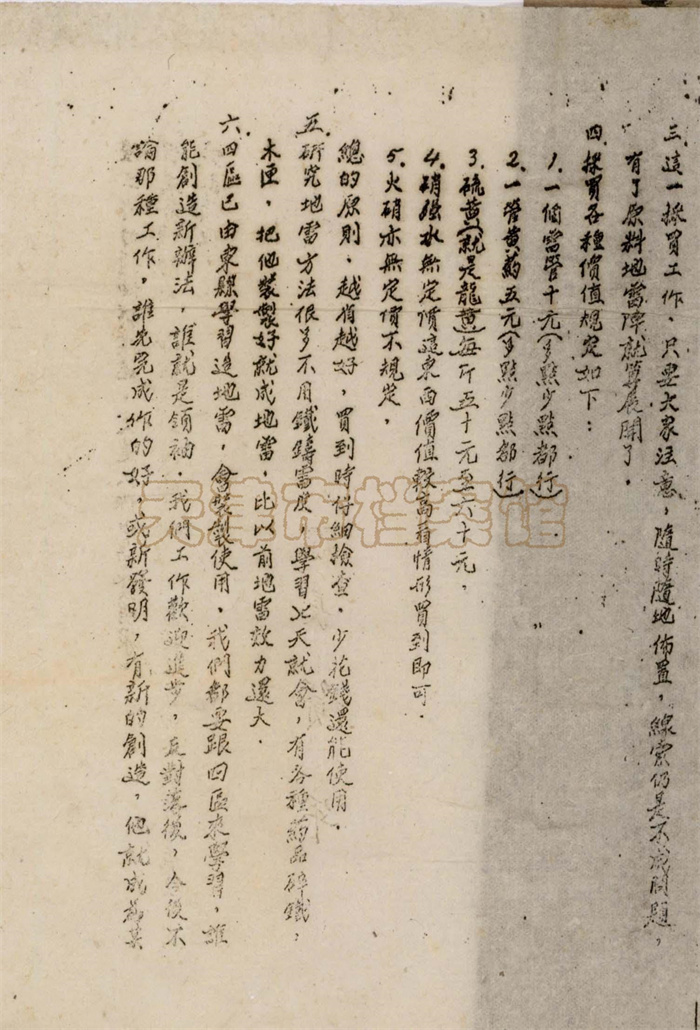 三.這一採買工作、只要大家注意，隨時隨地佈置，線索仍是不成問題，
有了原料地雷陣就算展開了.
四.採買各種價值規定如下：
1.一個雷管十元(多點少點都行)
2.一管黃葯五元(多點少點都行)
3.硫黃(就是龍黃)每斤五十元至六十元，
4.硝强水無定價這東西價值較高看情形買到即可.
5.火硝亦無定價不規定，
總的原則、越省越好，買到時仔細檢查、少花錢還能使用.
五.研究地雷方法很多不用鐵鑄雷皮 學習幾天就會，有各種葯品碎鐵，
木匣，把他裝製好就成地雷，比以前地雷效力還大.
六.四區已由東縣學習造地雷，會裝製使用，我們都要跟四區來學習，誰
能創造新辦法，誰就是領袖.我們工作歡迎進步，反對落後，今後不
論那種工作，誰先完成作的好，或新發明，有新的創造，他就成為某
天津市档案馆